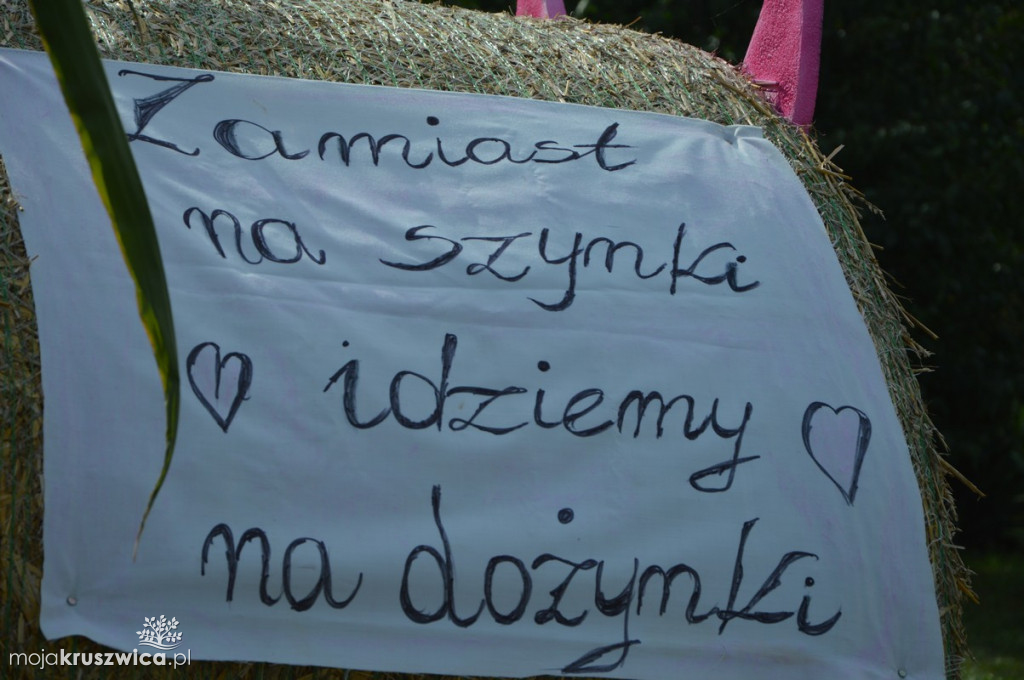 Zamiast
na szynki
idziemy
na dożynki
mojakruszwica.pl